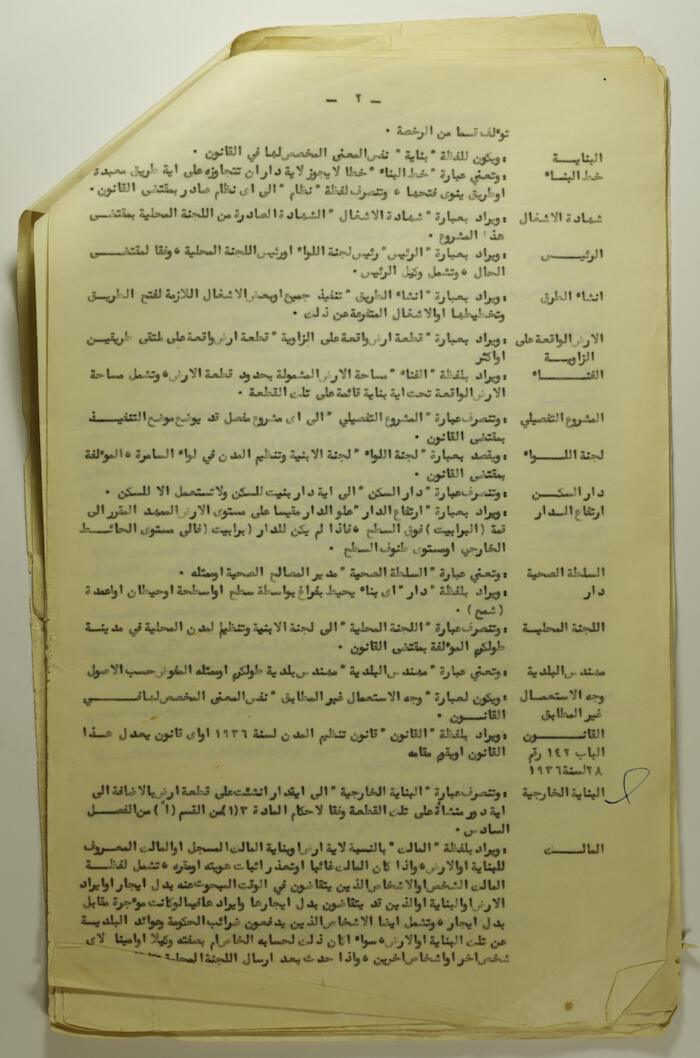 — ٢ —
توءلف قسما من الرخصة ٠
البنايــة : ويكون للفظة "بناية" نفس المعنى المخصص لها في القانون ٠
خط البنــاء : وتعني عبارة "خط البناء" خطا لا يجوز لاية دار ان تتجاوزه على اية طريق معبدة
او طريق ينوى فتحها ٥ وتنصرف لفظة "نظام" الى اى نظام صادر بمقتضى القانون ٠
شهادة الاشغال : ويراد بعبارة "شهادة الاشغال" الشهادة الصادرة من اللجنة المحلية بمقتضى
هذا المشروع ٠
الرئيـــس : ويراد بعبارة "الرئيس" رئيس لجنة اللواء او رئيس اللجنة المحلية ٥ وفقا لمقتضــى
الحال ٥ وتشمل وكيل الرئيس ٠
انشاء الطرق : ويراد بعبارة "انشاء الطريق" تنفيذ جميع او بعض الاشغال اللازمة لفتح الطريــق
وتخطيطها او الاشغال المتفرعة عن ذلك ٠
الارض الواقعة على : ويراد بعبارة "قطعة ارض واقعة على الزاوية" قطعة ارض واقعة على ملتقى طريقيــن
الزاويــة او اكثر
الفنـــــاء : ويراد بلفظة "الفناء" مساحة الارض المشمولة بحدود قطعة الارض ٥ وتشمل مساحة
الارض الواقعة تحت اية بناية قائمة على تلك القطعة ٠
المشروع التفصيلي : وتنصرف عبارة "المشروع التفصيلي" الى اى مشروع مفصل قد يوضع موضع التنفيــذ
بمقتضى القانون ٠
لجنة اللـــواء : ويقصد بعبارة "لجنة اللواء" لجنة الابنية وتنظيم المدن في لواء السامرة ٥ الموءلفة
بمقتضى القانون ٠
دار السكــن : وتنصرف عبارة "دار السكن" الى اية دار بنيت للسكن ولا تستعمل الا للسكن ٠
ارتفاع الـدار : ويراد بعبارة "ارتفاع الدار" علو الدار مقيسا على مستوى الارض الممهد المقرر الى
قمة (البرابيت) فوق السطح ٥ فاذا لم يكن للدار (برابيت) فالى مستوى الحائــط
الخارجي او مستوى طنوف السطح ٠
السلطة الصحية : وتعني عبارة "السلطة الصحية" مدير المصالح الصحية او ممثله ٠
دار : ويراد بلفظة "دار" اى بناء يحيط بفراغ بواسطة سطح او اسطحة او حيطان او اعمدة
(شمع) ٠
اللجنة المحليــة : وتنصرف عبارة "اللجنة المحلية" الى لجنة الابنية وتنظيم لمدن المحلية في مدينــة
طولكرم الموءلفة بمقتضى القانون ٠
مهندس البلدية : وتعني عبارة "مهندس البلدية" مهندس بلدية طولكرم او ممثله المفوض حسب الاصول
وجه الاستعمـال : ويكون لعبارة "وجه الاستعمال غير المطابق" نفس المعنى المخصص لها فــي
غير المطابق القانـــون ٠
القانـــــون : ويراد بلفظة "القانون" قانون تنظيم المدن لسنة ١٩٣٦ او اى قانون يعدل هــذا
الباب ١٤٢ رقم القانون او يقوم مقامه
٢٨ لسنة ١٩٣٦
البناية الخارجية : وتنصرف عبارة "البناية الخارجية" الى اية دار انشئت على قطعة ارض بالاضافة الى
اية دور منشأة على تلك القطعة وفقا لاحكام المادة ٣ (١) من القسم (أ) من الفصــل
السادس ٠
المالـــك : ويراد بلفظة "المالك" بالنسبة لاية ارض او بناية المالك المسجل او المالك المعروف
للبناية او الارض ٥ واذا كان المالك غائبا او تعذر اثبات هويته او مقره ٥ تشمل لفظــة
المالك الشخص او الاشخاص الذين يتقاضون في الوقت المبحوث عنه بدل ايجار او ايراد
الارض او البناية او الذين قد يتقاضون بدل ايجارها او ايراد هافيما لو كانت موءجرة مقابل
بدل ايجار ٥ وتشمل ايضا الاشخاص الذين يدفعون ضرائب الحكومة وعوائد البلديـة
عن تلك البناية او الارض ٥ سواء اكان ذلك لحسابه الخاص ام بصفته وكيلا او امينا لاى
شخص اخر او اشخاص اخرين ٥ واذا حدث بعد ارسال اللجنة المحلية